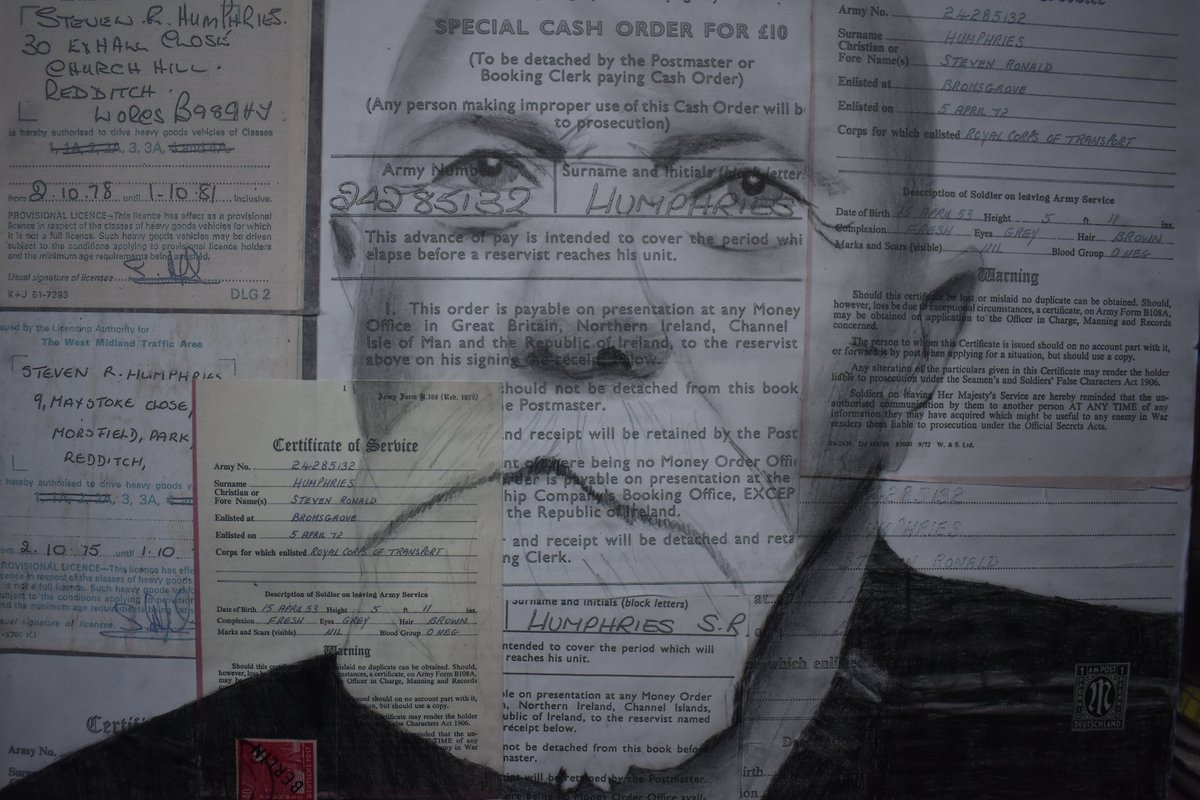 STEVEN R. HUMPHRIES.
30 EXHALL CLOSE
CHURCH HILL.
REDDITCH.
WORCS B989HY
is hereby authorised to drive heavy goods vehicles of Classes
1, 1A, 2, 2A, 3, 3A,
from 2.10.78 until 1-10.81 inclusive.
PROVISIONAL LICENCE—This licence has effect as a provisional
licence in respect of the classes of heavy goods vehicles for which
it is not a full licence. Such heavy goods vehicles may be driven
subject to the conditions applying to provisional licence holders
and the minimum age requirements being satisfied.
Usual signature of licensee
K+J 51-7293 DLG 2
ssued by the Licensing Authority for
The West Midland Traffic Area
STEVEN R. HUMPHRIES
9, MAYSTOKE CLOSE,
MORSFIELD, PARK
REDDITCH,
hereby authorised to drive heavy
1, 1A, 2, 2A, 3, 3A,
2.10.75 until 1.10
PROVISIONAL LICENCE—This licence has effe
cence in respect of the classes of heavy goods
is not a full licence. Such heavy goods vehic
subject to the conditions applying to provision
nd the minimum age requ
sual signature of licensee
SPECIAL CASH ORDER FOR £10
(To be detached by the Postmaster or
Booking Clerk paying Cash Order)
(Any person making improper use of this Cash Order will b
to prosecution)
Army Number Surname and Initials (block letter
24285132 HUMPHRIES
This advance of pay is intended to cover the period whi
elapse before a reservist reaches his unit.
1. This order is payable on presentation at any Money
Office in Great Britain, Northern Ireland, Channel
Isle of Man and the Republic of Ireland, to the reservist
above on his signing the receipt below.
should not be detached from this book
e Postmaster.
nd receipt will be retained by the Post
nt of there being no Money Order Offi
rder is payable on presentation at the
hip Company's Booking Office, EXCEP
the Republic of Ireland.
r and receipt will be detached and reta
ng Clerk.
Surname and Initials (block letters)
HUMPHRIES S.R
ntended to cover the period which will
reaches his unit.
le on presentation at any Money Order
, Northern Ireland, Channel Islands,
ublic of Ireland, to the reservist named
receipt below.
not be detached from this book befor
will be retained by the Postmaster.
being no Money Order Office avail-
Army No. 24285132
Surname HUMPHRIES
Christian or
Fore Name(s) STEVEN RONALD
Enlisted at BROMSGROVE
Enlisted on 5 APRIL 72
Corps for which enlisted ROYAL CORPS OF TRANSPORT
Description of Soldier on leaving Army Service
Date of Birth 15 APRIL 53 Height 5 ft. 11 ins.
Complexion FRESH Eyes GREY Hair BROWN
Marks and Scars (visible) NIL Blood Group O NEG
Warning
Should this certificate be lost or mislaid no duplicate can be obtained. Should,
however, loss be due to exceptional circumstances, a certificate, on Army Form B108A,
may be obtained on application to the Officer in Charge, Manning and Records
concerned.
The person to whom this Certificate is issued should on no account part with it,
or forward it by post when applying for a situation, but should use a copy.
Any alteration of the particulars given in this Certificate may render the holder
liable to prosecution under the Seamen's and Soldiers' False Characters Act 1906.
Soldiers on leaving Her Majesty's Service are hereby reminded that the un-
authorised communication by them to another person AT ANY TIME of any
information they may have acquired which might be useful to any enemy in War
renders them liable to prosecution under the Official Secrets Acts.
1
Certificate of Service
Army No. 24285132
Surname HUMPHRIES
Christian or
Fore Name(s) STEVEN RONALD
Enlisted at BROMSGROVE
Enlisted on 5 APRIL 72
Corps for which enlisted ROYAL CORPS OF TRANSPORT
Description of Soldier on leaving Army Service
Date of Birth 15 APRIL 53 Height 5 ft. 11 ins.
Complexion FRESH Eyes GREY Hair BROWN
Marks and Scars (visible) NIL Blood Group O NEG
Warning
Should this certi mislaid no duplicate can be obtained. Should,
however, loss circumstances, a certificate, on Army Form B108A,
Officer in Charge, Manning and Records
issued should on no account part with it,
but should use a copy.
Certificate may render the holder
False Characters Act 1906.
reminded that the un-
TIME of any
enemy in War
Army No.
RONALD
which enlis
BERLIN
DEUTSCHE POST
1 AM POST 1
M
DEUTSCHLAND